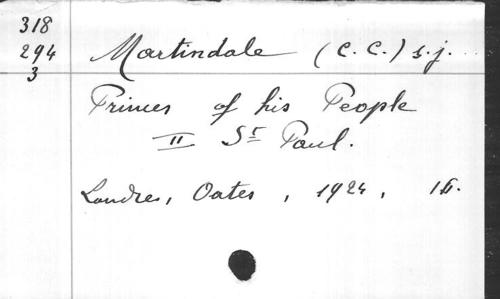 318
294
3
Martindale (C. C.) s.j.
Princes of his People
II St Paul.
Londres, Oates, 1924,